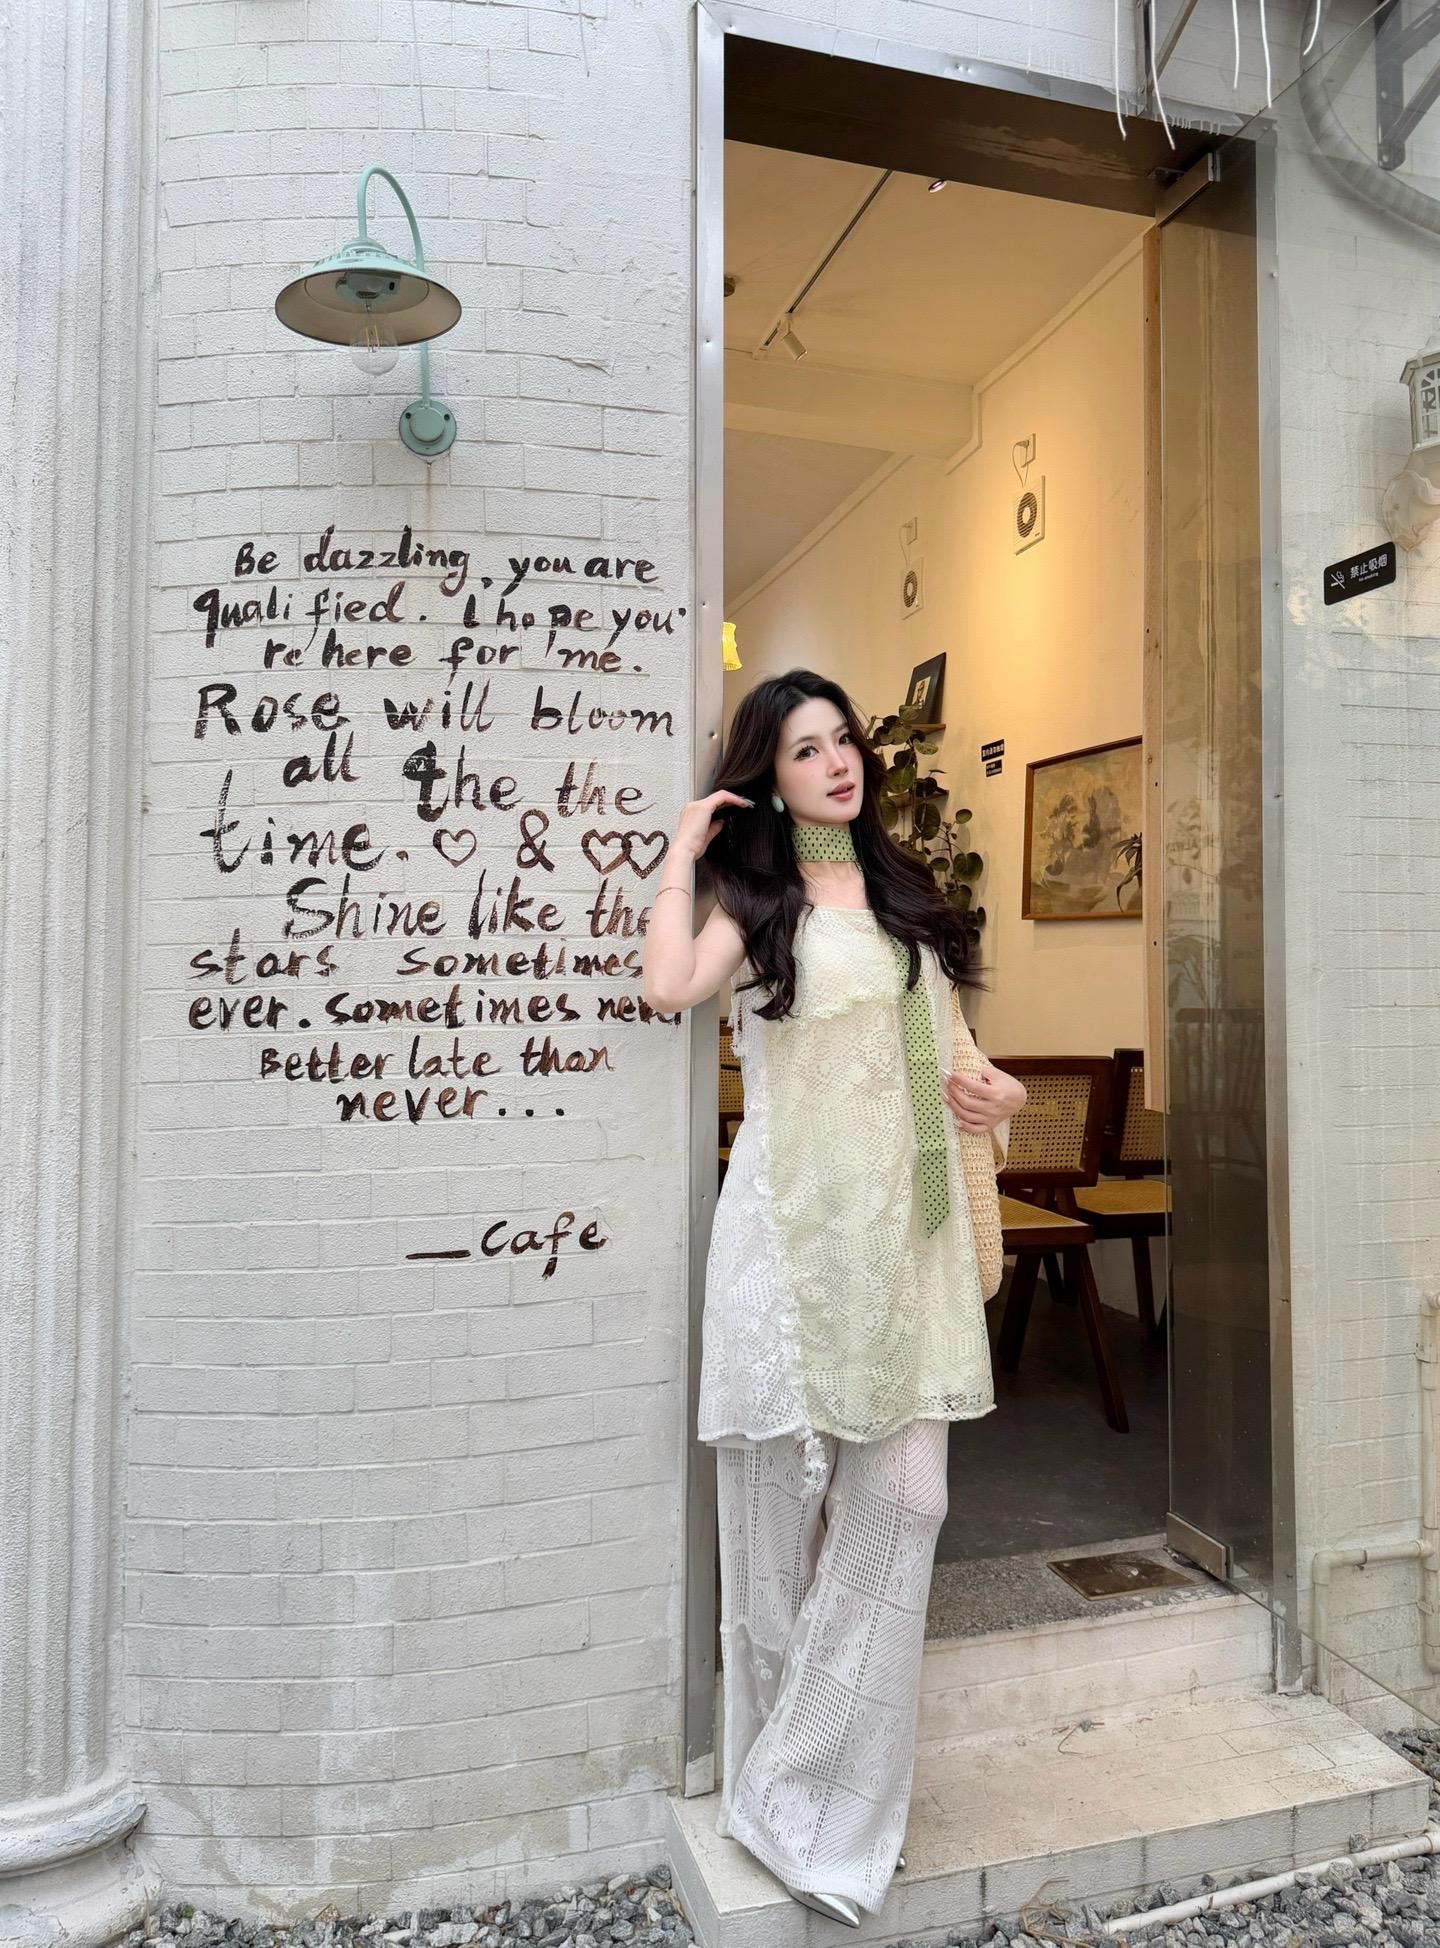 Be dazzling, you are
qualified. I hope you'
re here for me.
Rose will bloom
all the the
time. ♡ & ♡♡
Shine like the
stars sometimes
ever. sometimes never
Better late than
never...
—cafe
禁止吸烟
no smoking